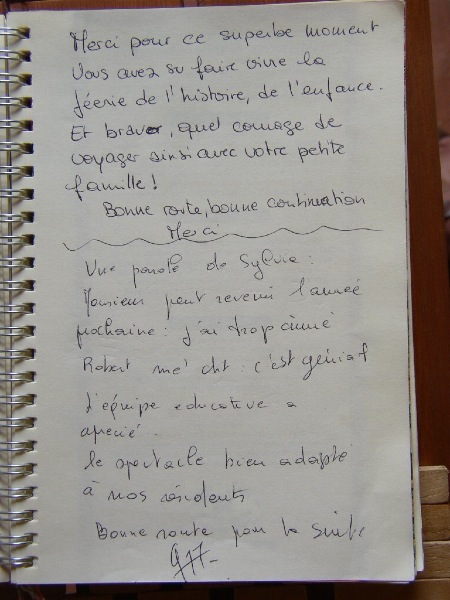 Merci pour ce superbe moment
Vous avez su faire vivre la
féerie de l'histoire, de l'enfance.
Et bravo, quel courage de
voyager ainsi avec votre petite
famille !
Bonne route, bonne continuation
Merci
Une parole de Sylvie :
Monsieur peut revenir l'année
prochaine : j'ai trop aimé
Robert me dit : c'est génial
L'équipe educative a
apecié.
le spectacle bien adapté
à nos résidents
Bonne route pour la suite